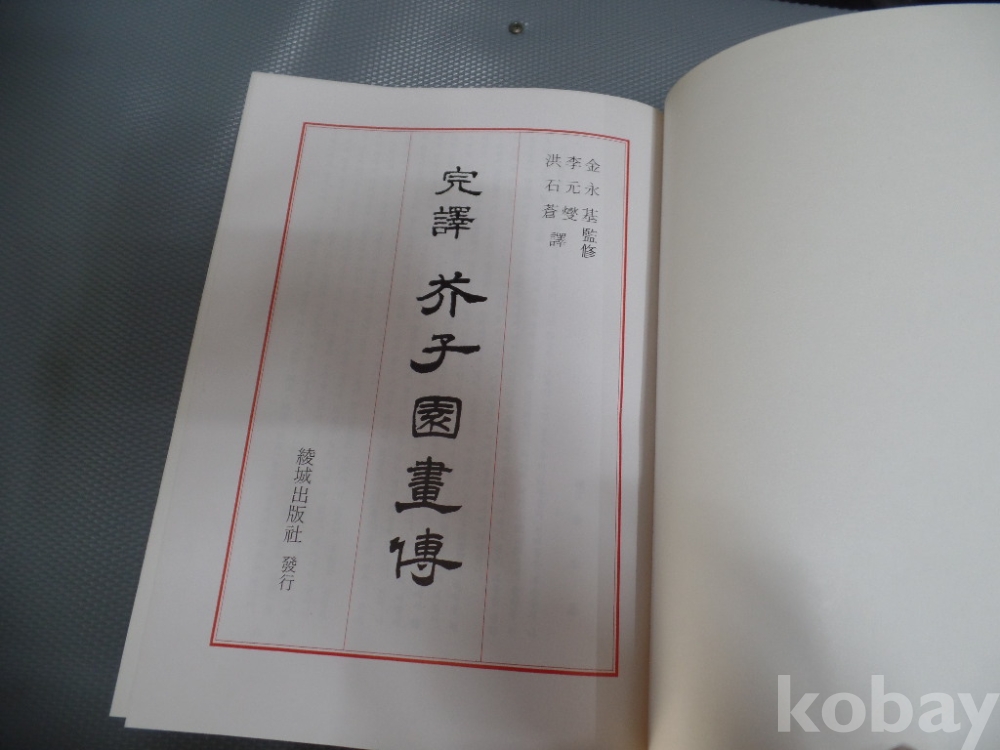 金永基監修
李元燮
洪石蒼 譯
完譯 芥子園畫傳
綾城出版社 發行
kobay